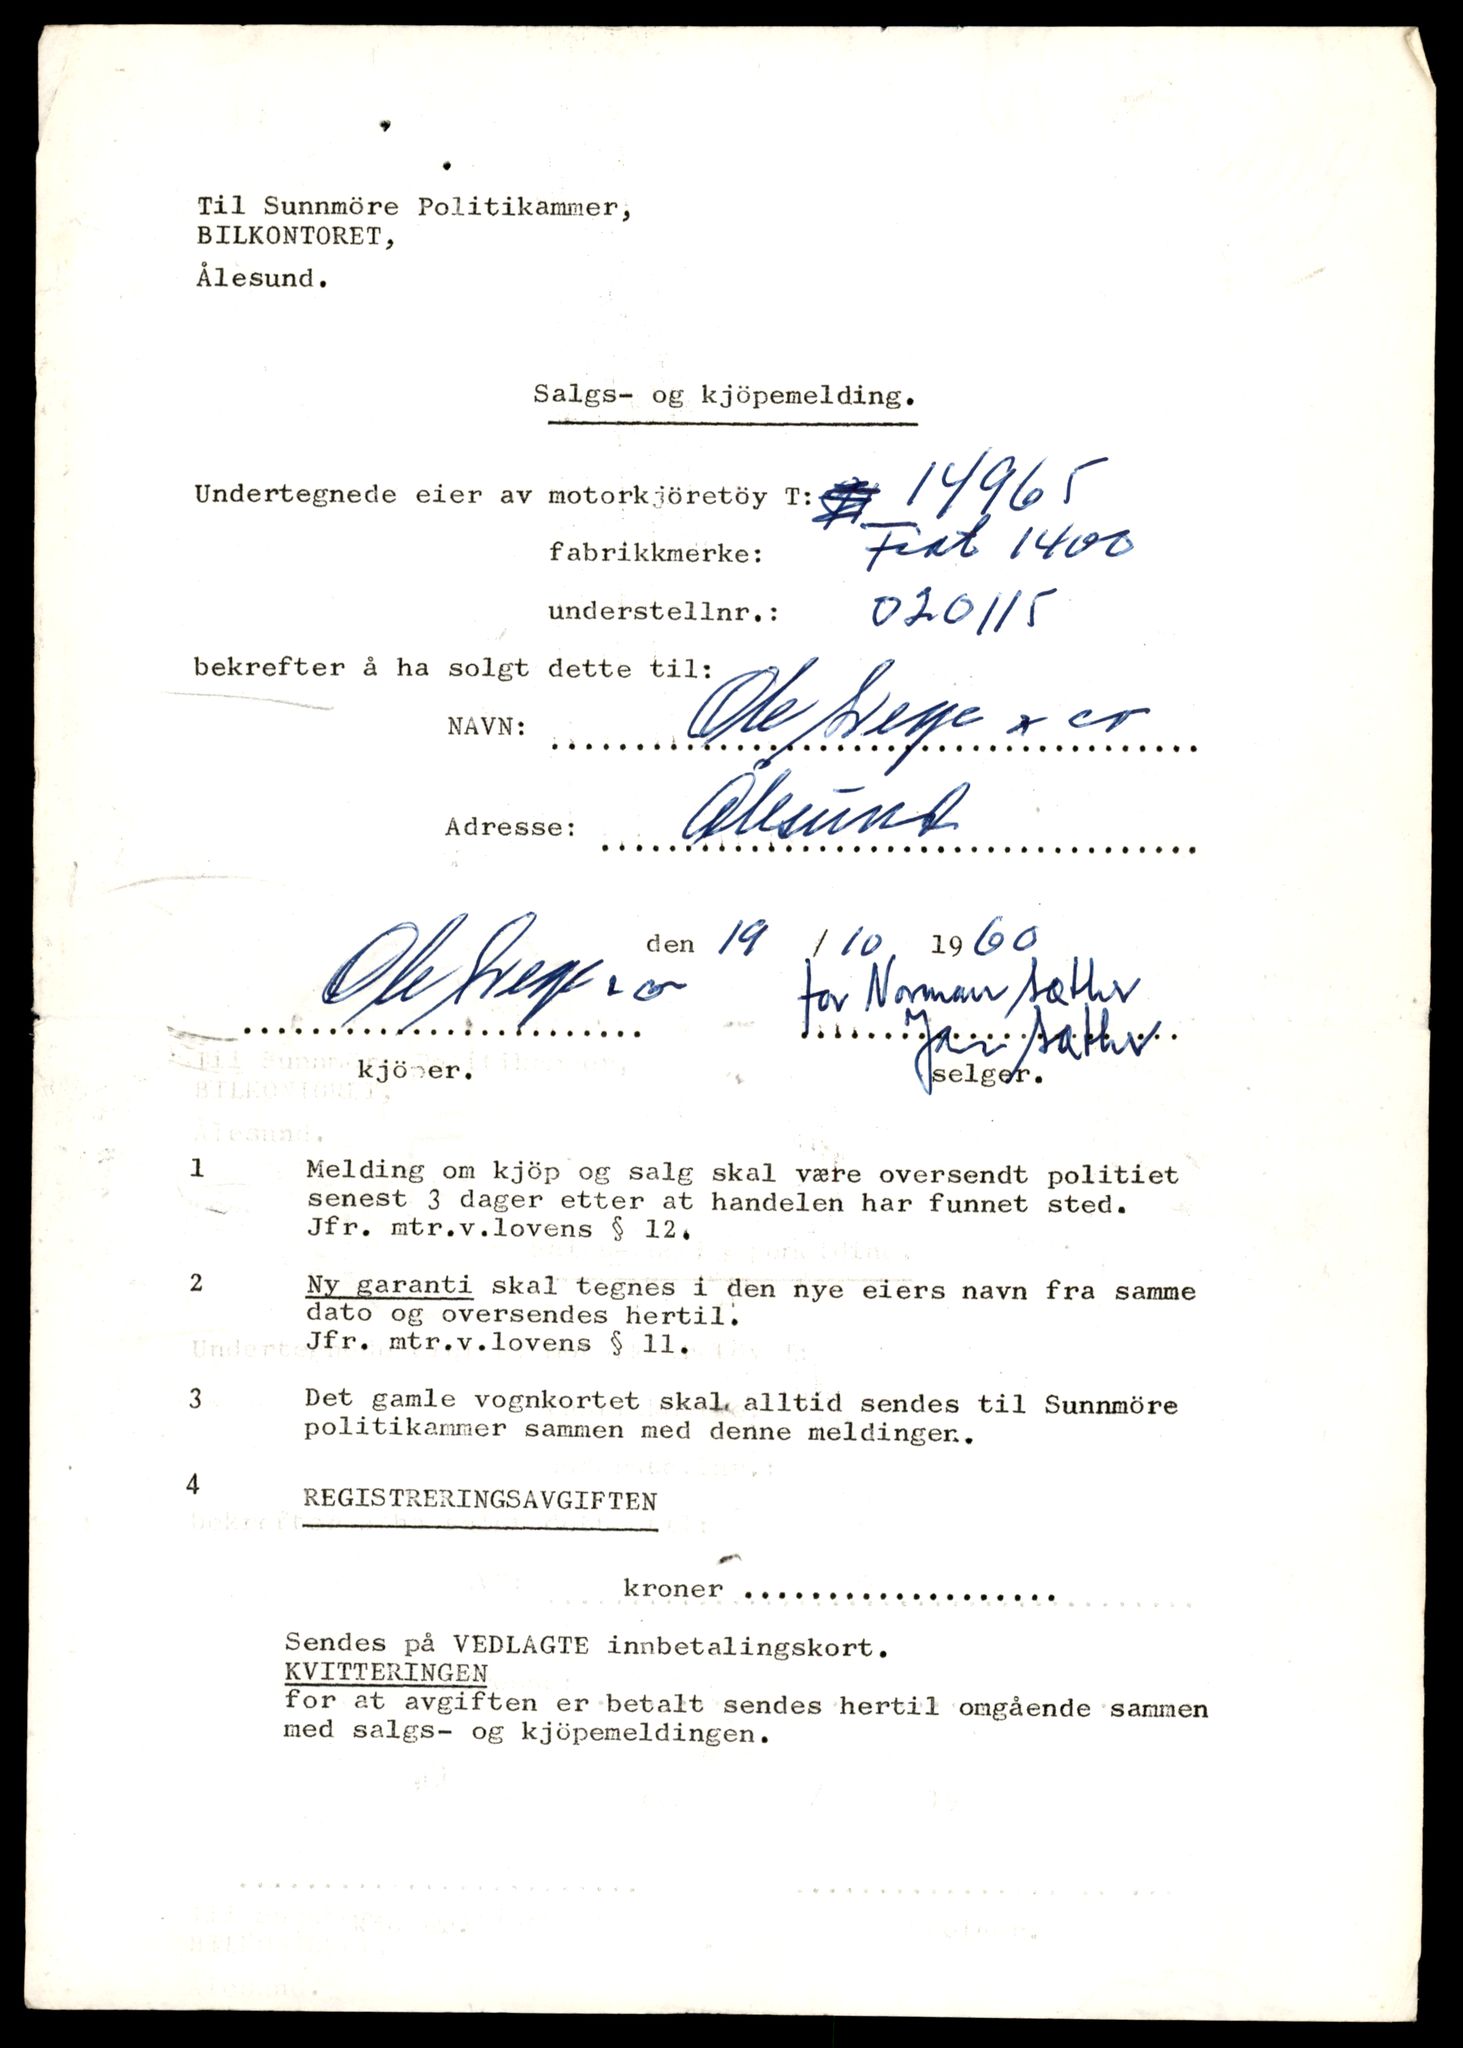 Til Sunnmöre Politikammer,
BILKONTORET,
Ålesund.
Salgs- og kjöpemelding.
Undertegnede eier av motorkjöretöy T: 14965
fabrikkmerke: Fiat 1400
understellnr.: 020115
bekrefter å ha solgt dette til:
NAVN: Ole Svege & co
Adresse: Ålesund
den 19 / 10 1960
Ole Svege & co for Norman Sæther
Jan Sæther
kjöper. selger.
1 Melding om kjöp og salg skal være oversendt politiet
senest 3 dager etter at handelen har funnet sted.
Jfr. mtr.v.lovens § 12.
2 Ny garanti skal tegnes i den nye eiers navn fra samme
dato og oversendes hertil.
Jfr. mtr.v.lovens § 11.
3 Det gamle vognkortet skal alltid sendes til Sunnmöre
politikammer sammen med denne meldingen.
4 REGISTRERINGSAVGIFTEN
kroner ...................
Sendes på VEDLAGTE innbetalingskort.
KVITTERINGEN
for at avgiften er betalt sendes hertil omgående sammen
med salgs- og kjöpemeldingen.